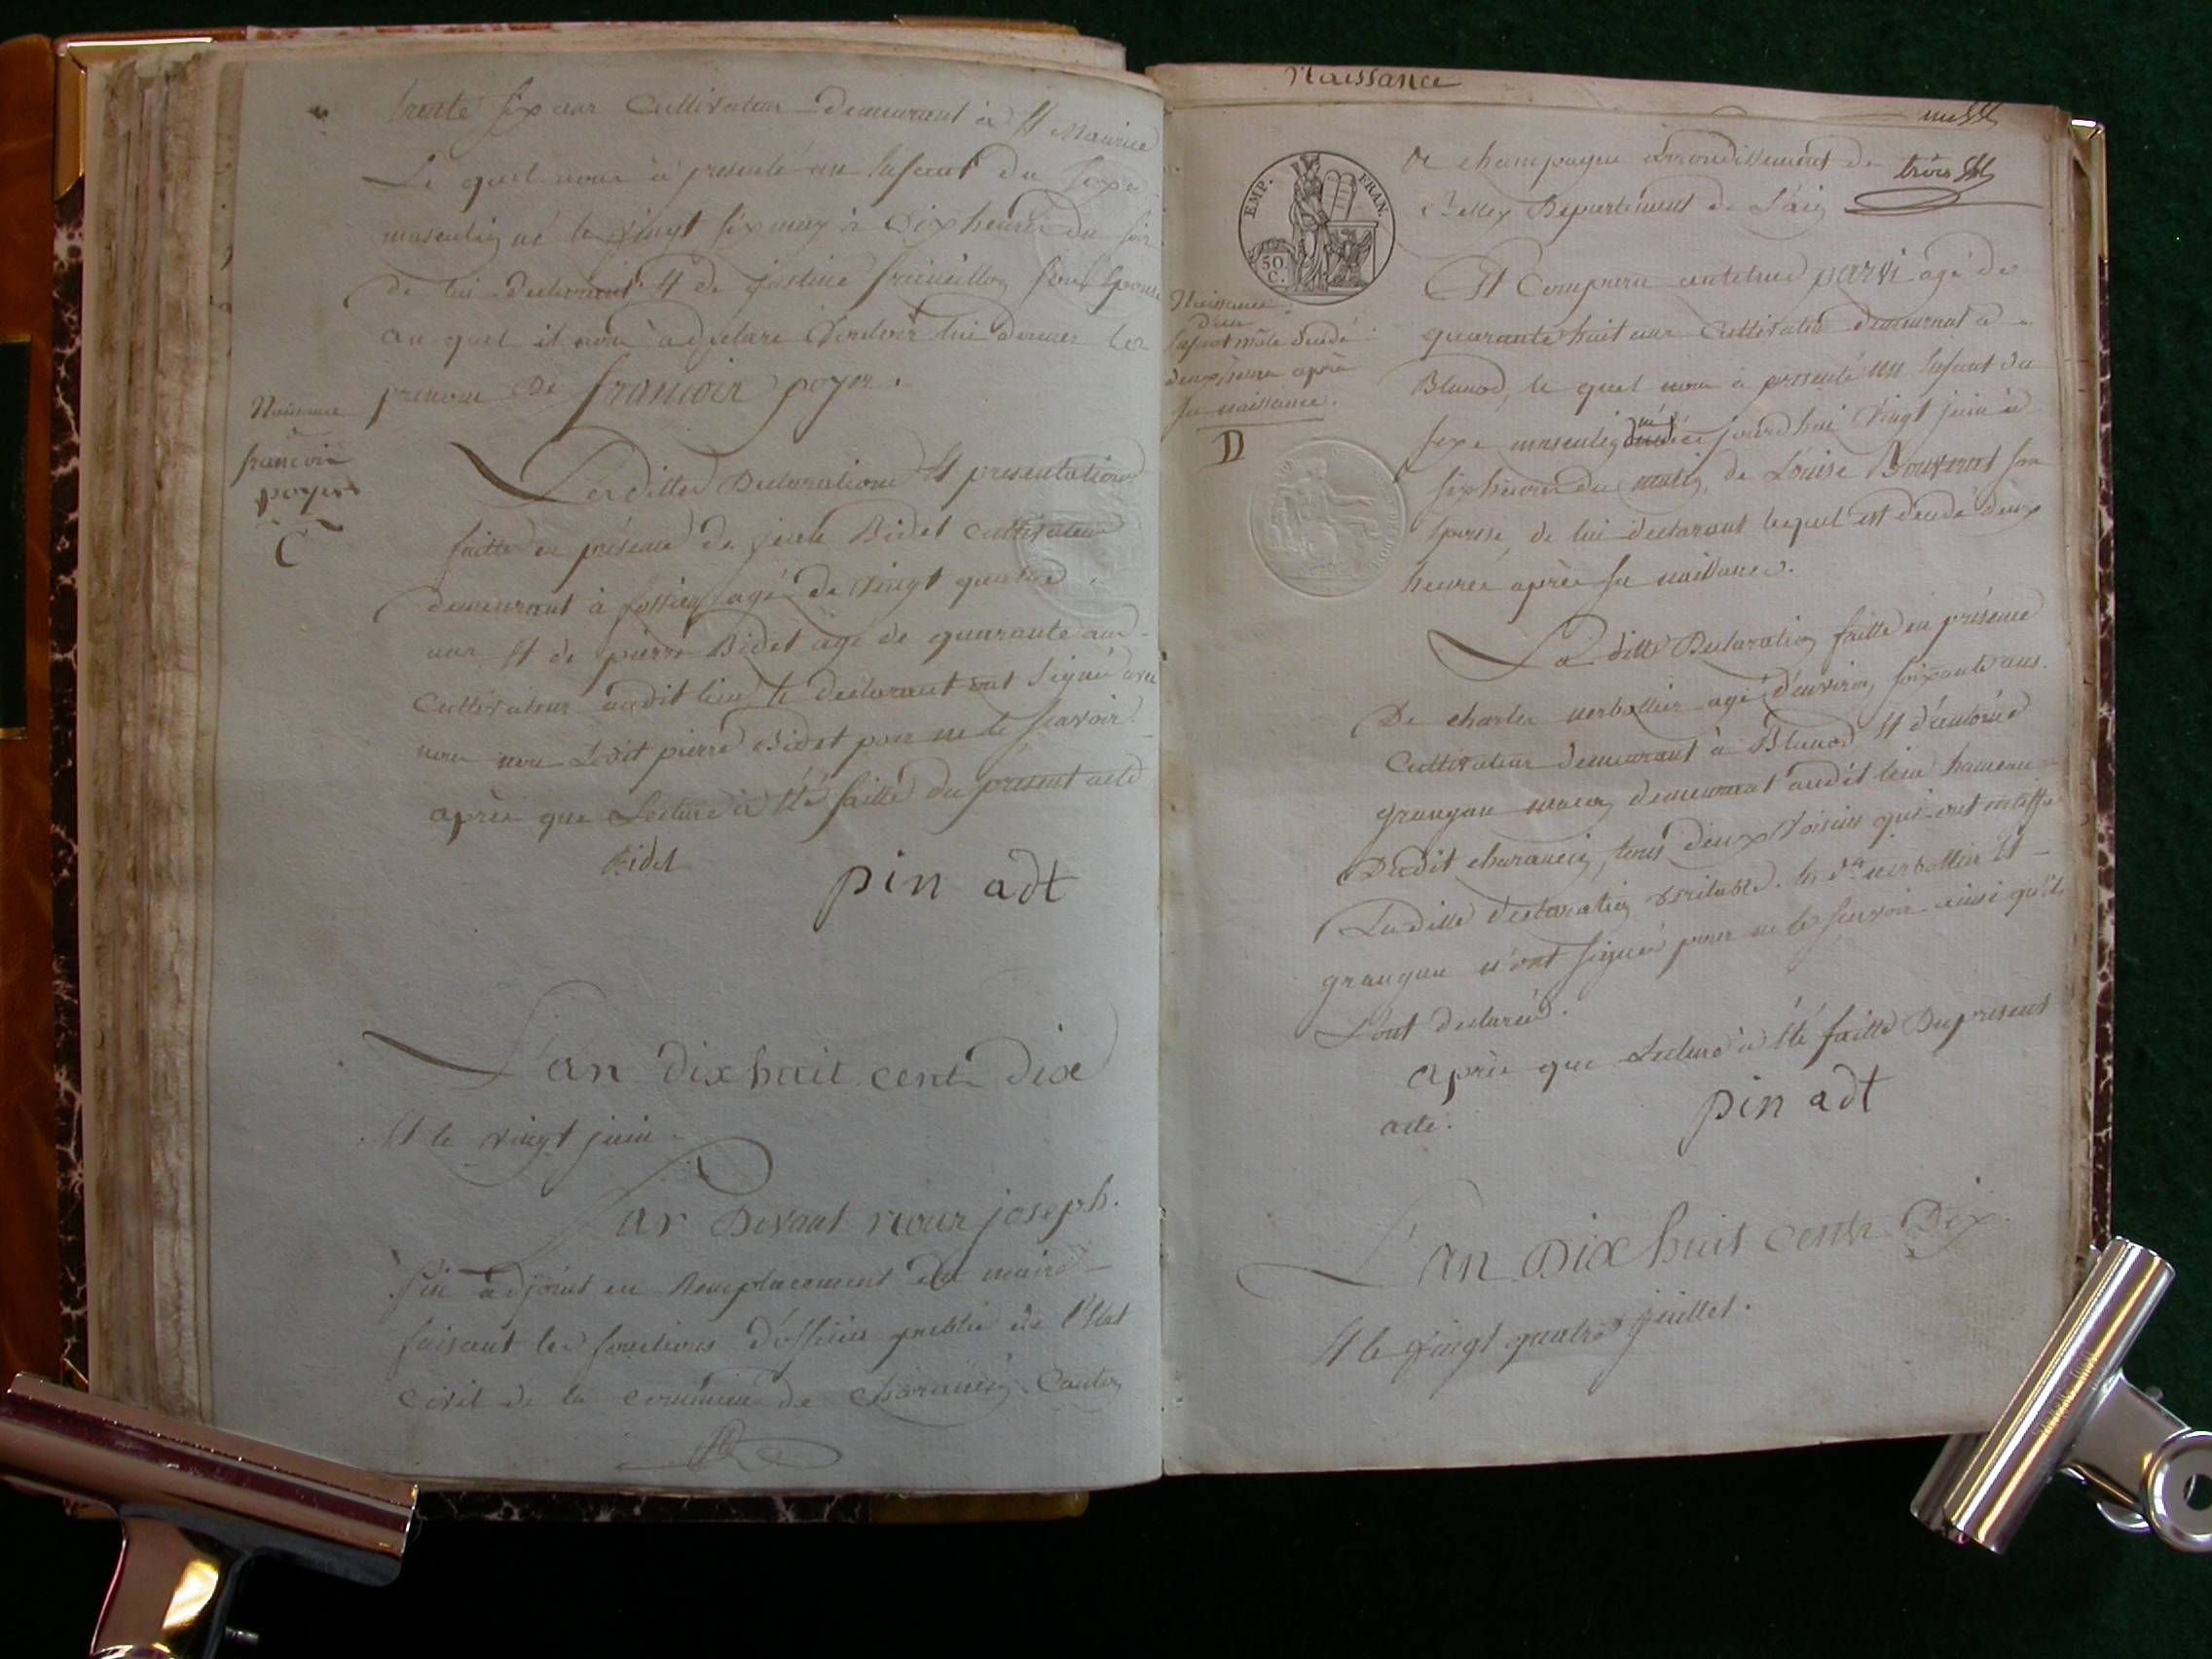 trente six ans Cultivateur demeurant à St Maurice
Le quel nous à presenté un Enfant du Sexe
masculin né le vingt six may à Dix heures du soir
de lui declarant Et de justine son Epouse
au quel il nous à declaré Vouloir lui donner les
prenom De francois poyet.
Naissance
de
francois
poyet
C
Les dittes Declarations Et presentations
faitte en présence de Bidet Cultivateur
demeurant à agé de vingt quatre
ans, Et de pierre Bidet agé de quarante ans
Cultivateur audit lieu, le declarant ont Signé avec
nous non Ledit pierre Bidet pour ne le Scavoir.
après que Lecture à Eté faitte du présent acte
Bidet
pin adt
L'an dix huit cent Dix
Et le vingt juin
Par Devant nous joseph.
Pin adjoint en Remplacement du maire
faisant les fonctions d'officier public de l'Etat
Civil de la Commune de Charancin, Canton
Naissance
trois
EMP. FRAN.
50 C.
De champagne arrondissement de
Belley Departement de L'ain
Est Comparu anthelme parvi agé de
quarante huit ans Cultivateur demeurant à
Blanod, le quel nous à presenté un Enfant du
Sexe masculin né ce jourd'hui Vingt juin à
Six heures du matin, de Louise Bouvent son
Epouse, de lui declarant lequel est décédé deux
heures après sa naissance.
Naissance
d'un
Enfant mâle décédé
deux heures après
sa naissance.
D
La ditte Declaration faitte en présence
De charles nerbollier agé d'environ soixante ans.
Cultivateur demeurant à Blanod Et d'antoine
grangeau maçon demeurant audit lieu hameau
Dudit charancin, tous deux Voisins qui ont attesté
La ditte declaration Véritable. les dts nerbollier Et
grangeau n'ont Signé pour ne le Scavoir ainsi qu'ils
L'ont declaré.
après que Lecture à Eté faitte Du present
acte.
pin adt
L'an Dix huit cents Dix.
Et le Vingt quatre juillet.